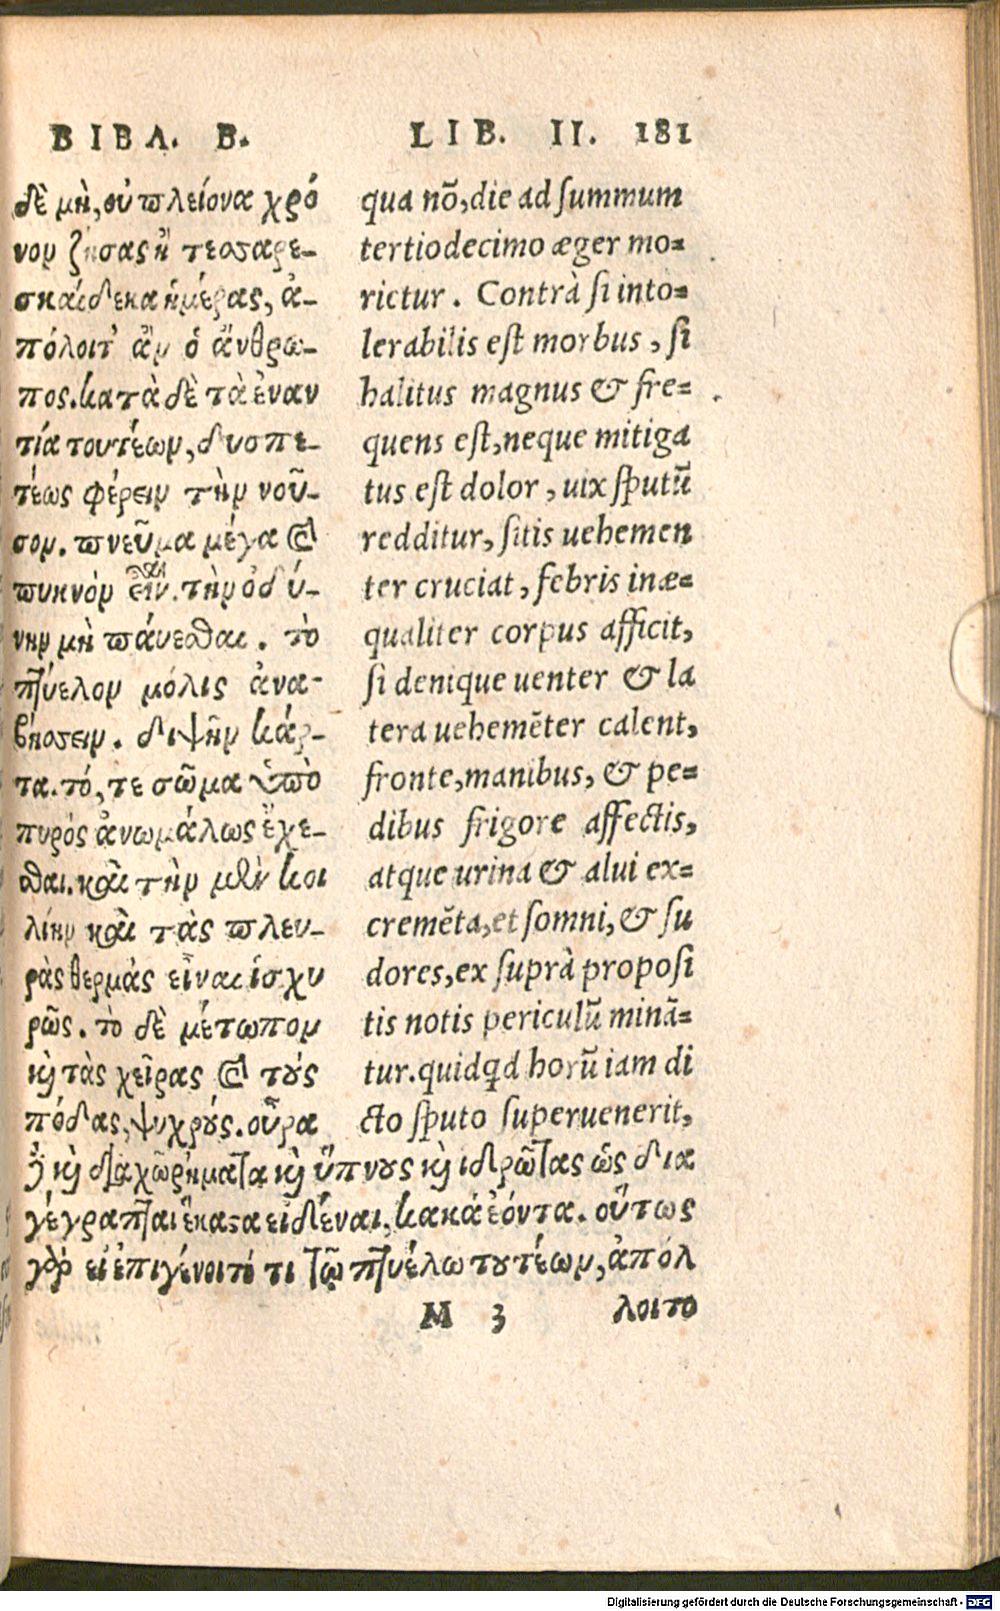 ΒΙΒΛ. Β.
δὲ μὴ, οὐ πλείονα χρό
νον ζήσας ἢ τεσσαρε-
σκαίδεκα ἡμέρας, ἀ-
πόλοιτ' ἂν ὁ ἄνθρω-
πος. κατὰ δὲ τὰ ἐναν
τία τουτέων, δυσπε-
τέως φέρειν τὴν νοῦ-
σον. πνεῦμα μέγα καὶ
πυκνὸν εἶναι. τὴν ὀδύ-
νην μὴ παύεσθαι. τὸ
πτύελον μόλις ἀνα-
βήσσειν. διψῆν κάρ-
τα. τό, τε σῶμα ὑπὸ
πυρὸς ἀνωμάλως ἔχε-
σθαι. καὶ τὴν μὲν κοι
λίην καὶ τὰς πλευ-
ρὰς θερμὰς εἶναι ἰσχυ
ρῶς. τὸ δὲ μέτωπον
καὶ τὰς χεῖρας καὶ τοὺς
πόδας, ψυχρούς. οὖρα
LIB. II. 181
qua nō, die ad summum
tertiodecimo æger mo=
rietur. Contrà si into=
lerabilis est morbus, si
halitus magnus & fre=
quens est, neque mitiga
tus est dolor, uix sputū
redditur, sitis uehemen
ter cruciat, febris inæ=
qualiter corpus afficit,
si denique uenter & la
tera uehemēter calent,
fronte, manibus, & pe=
dibus frigore affectis,
atque urina & alui ex=
cremēta, et somni, & su
dores, ex suprà proposi
tis notis periculū minā=
tur. quidqd horū iam di
cto sputo superuenerit,
καὶ διαχωρήματα καὶ ὕπνους καὶ ἱδρῶτας ὡς δια
γέγραπται ἕκαστα εἰδέναι, κακὰ ἐόντα. οὕτως
γὰρ εἰ ἐπιγένοιτό τι τῷ πτυέλω τουτέων, ἀπόλ
M 3 λοιτο
Digitalisierung gefördert durch die Deutsche Forschungsgemeinschaft - DFG